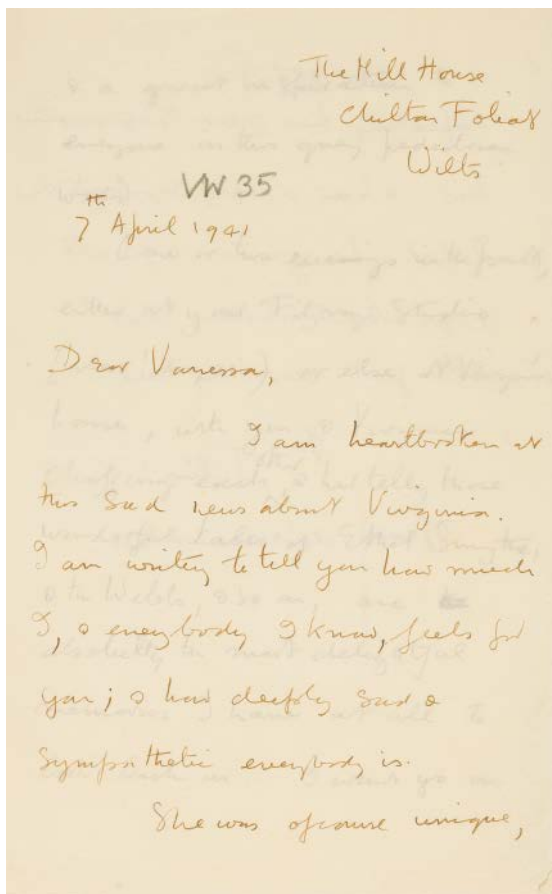 The Mill House
Chilton Foliat
Wilts
VW 35
7th April 1941
Dear Vanessa,
I am heartbroken at
this sad news about Virginia.
I am writing to tell you how much
I, & everybody I know, feels for
you; & how deeply sad &
sympathetic everybody is.
She was of course unique,